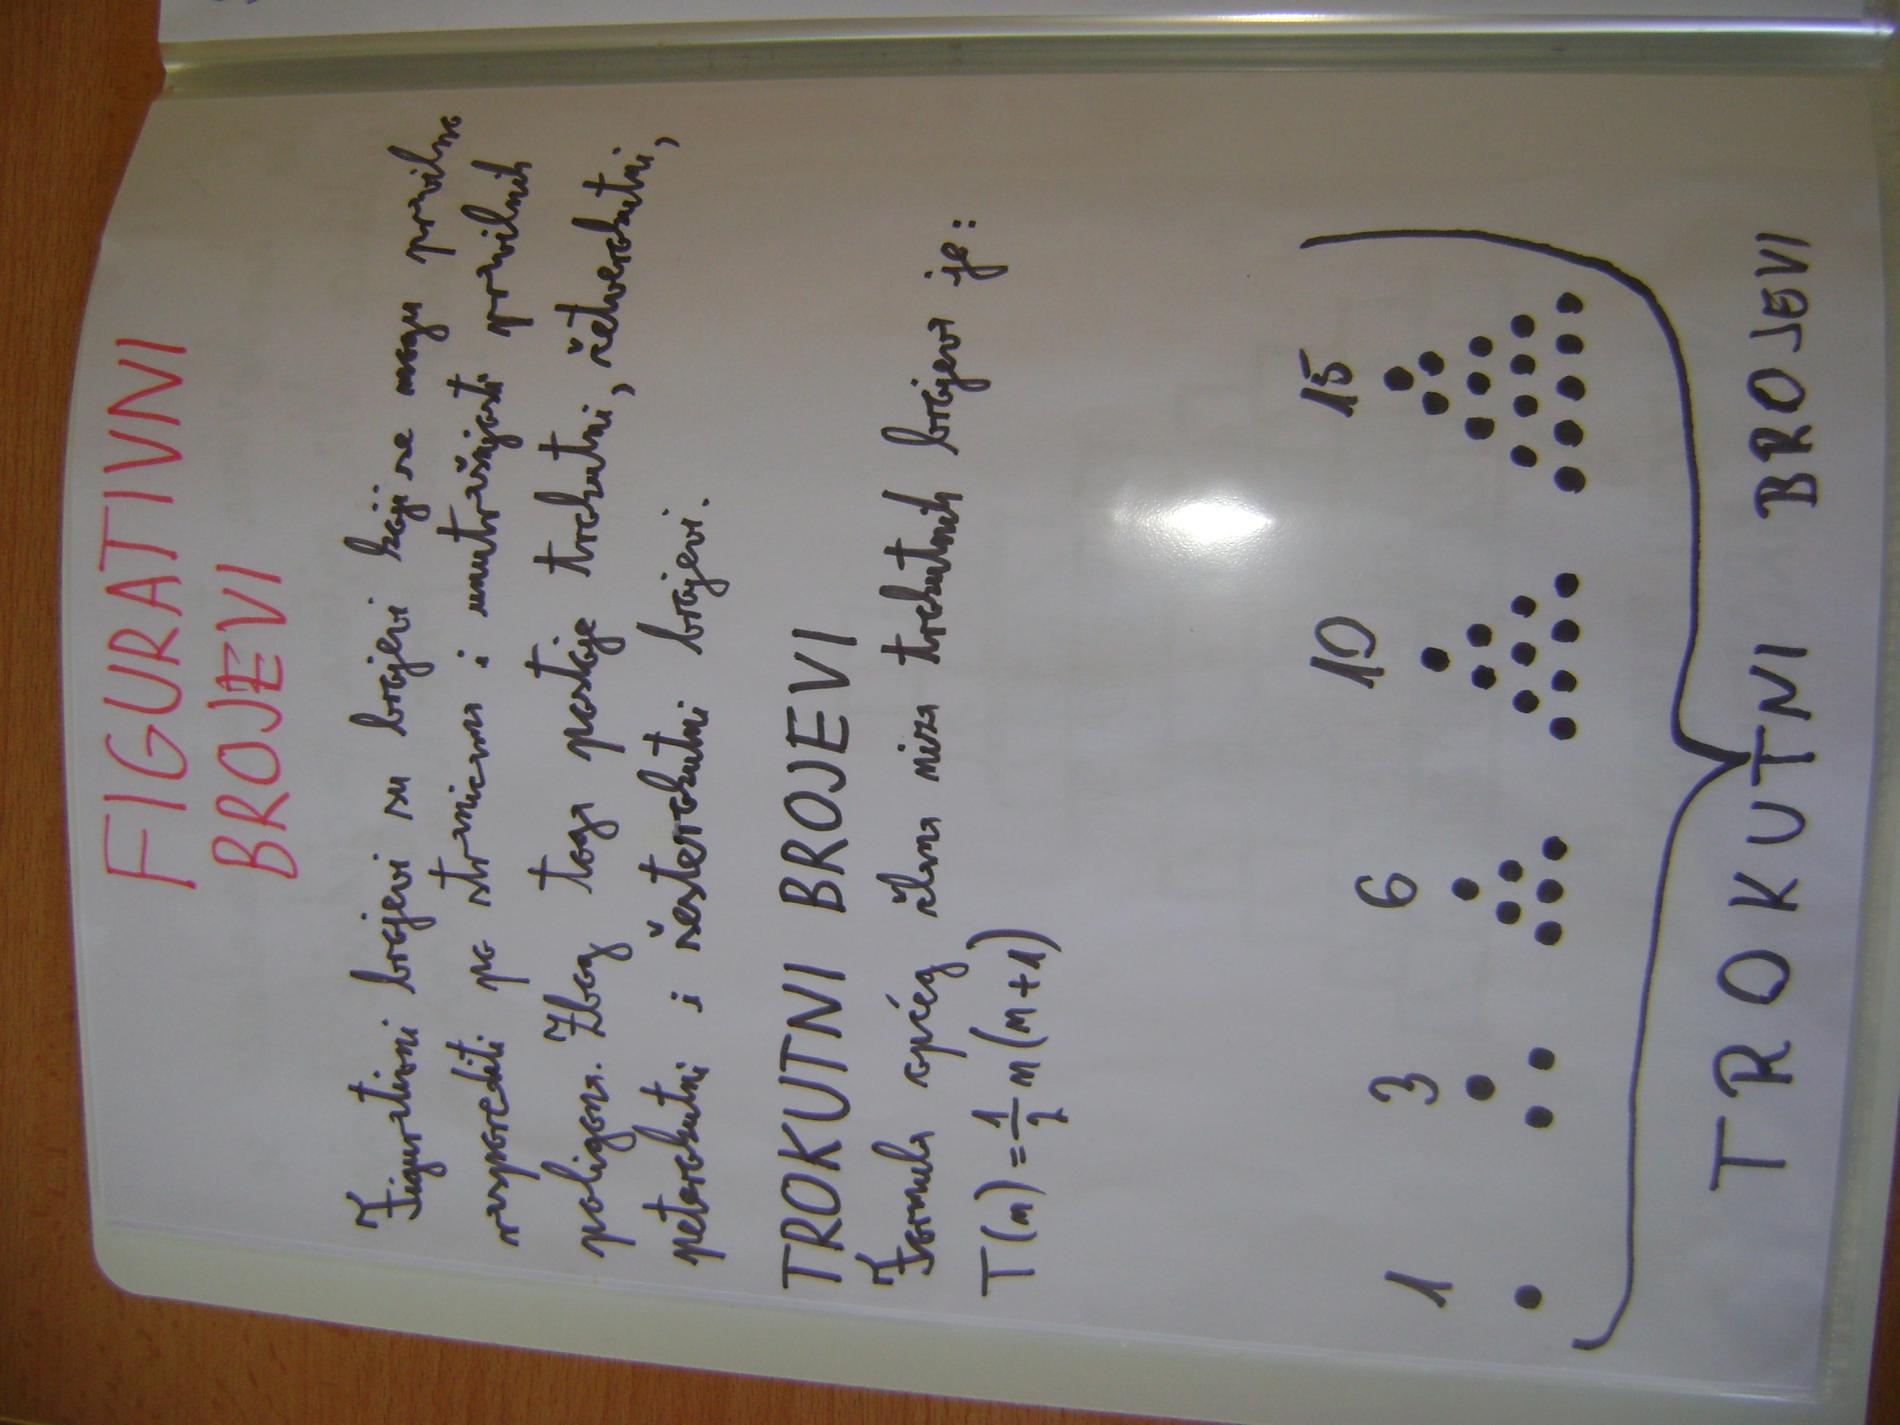 FIGURATIVNI
BROJEVI
Figurativni brojevi su brojevi koji se mogu pravilno
rasporediti po stranicama i unutrašnjosti pravilnih
poligona. Zbog toga postoje trokutni, četverokutni,
peterokutni i šesterokutni brojevi.
TROKUTNI BROJEVI
Formula općeg člana niza trokutnih brojeva je:
T(n)=1/2 n(n+1)
1 3 6 10 15
TROKUTNI BROJEVI